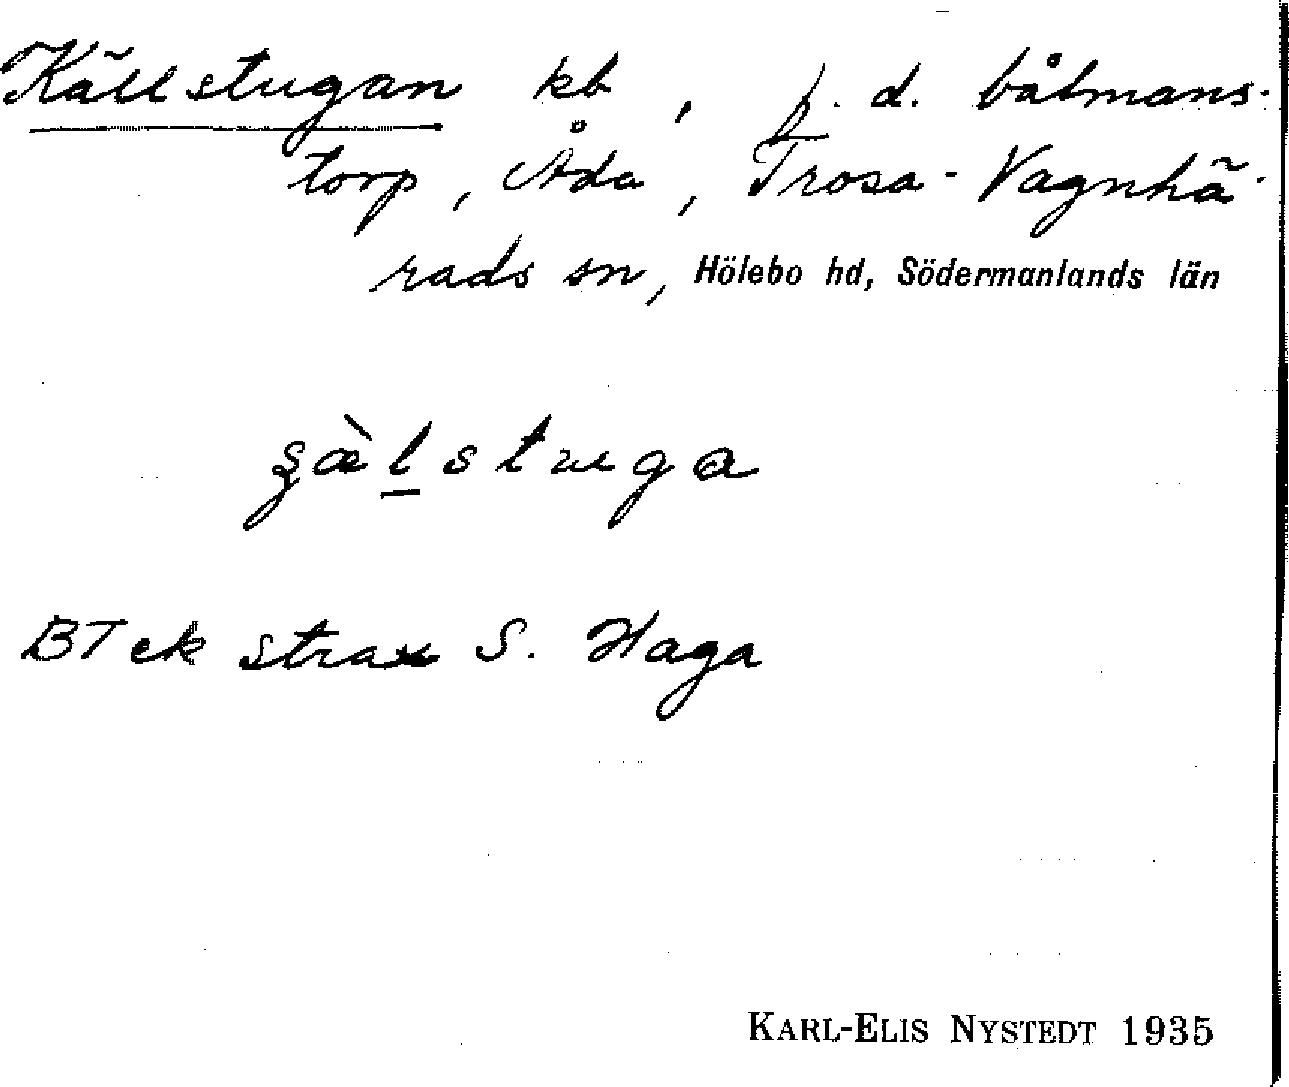 Källstugan kb, f. d. båtmans-
torp, Åda, Trosa-Vagnhä-
rads sn, Hölebo hd, Södermanlands län
BT ek strax S. Haga
KARL-ELIS NYSTEDT 1935